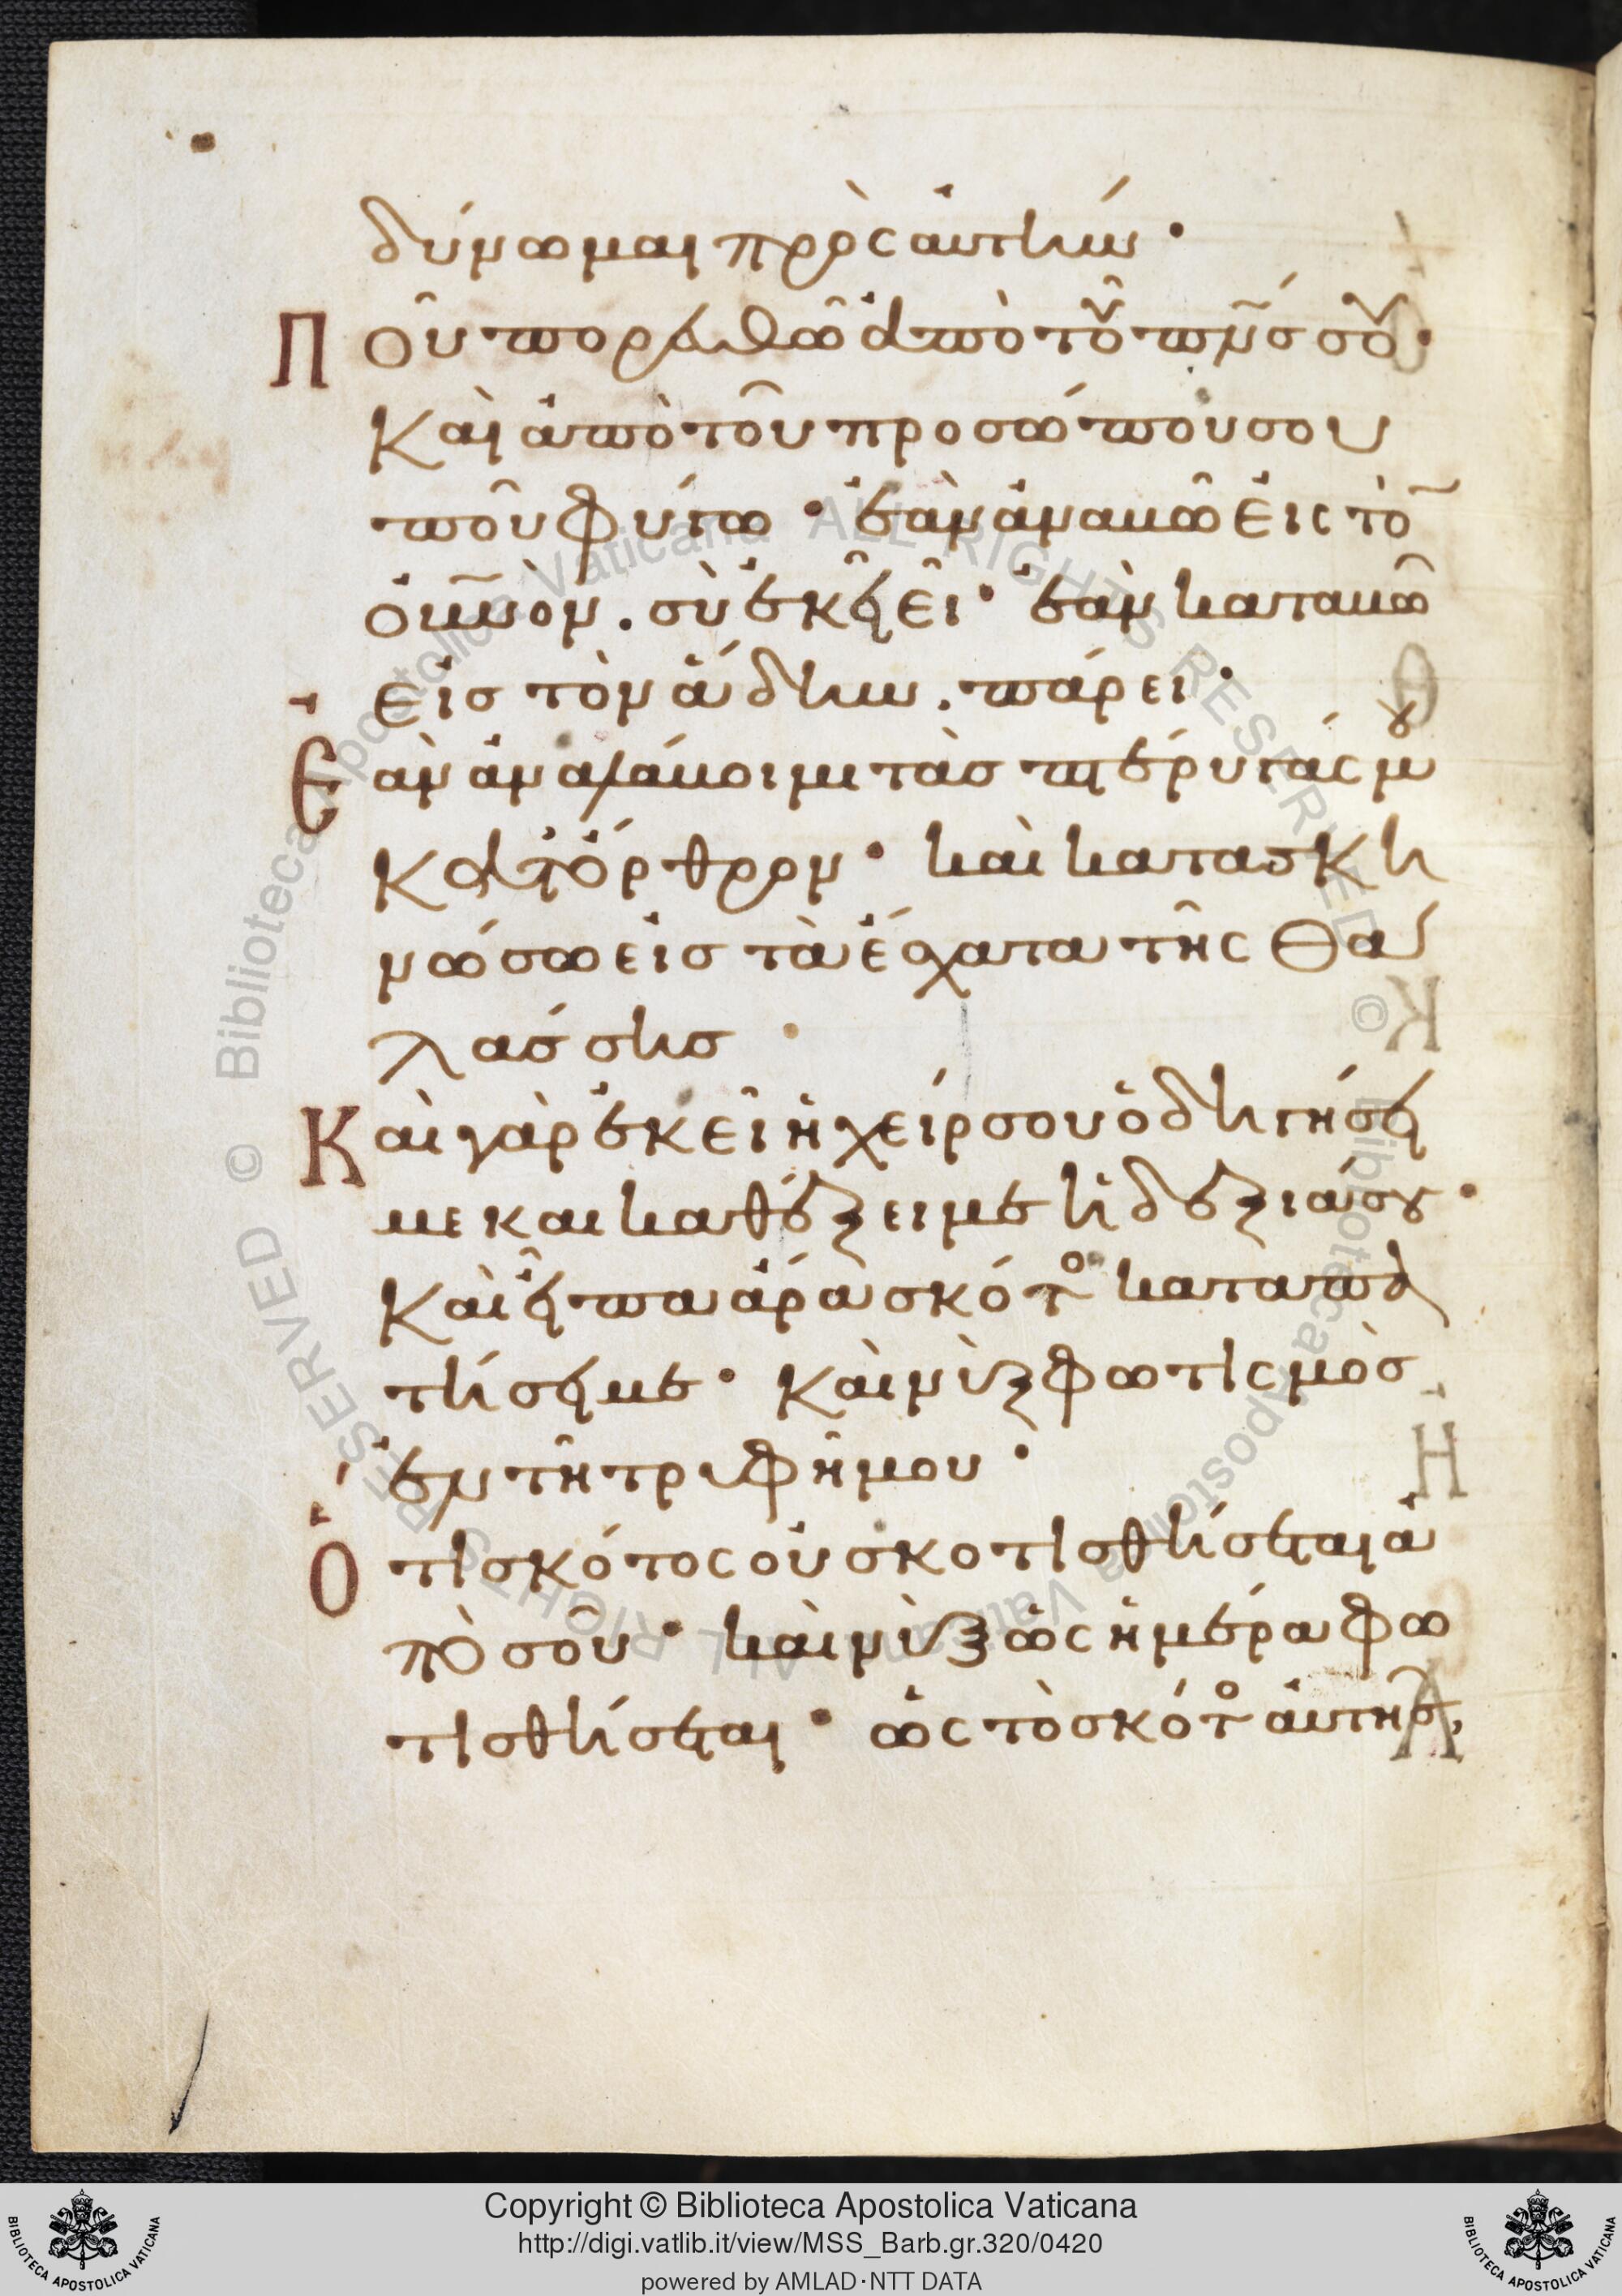 δύνωμαι πρὸς ἀυτήν·
Ποῦ πορευθῶ ἀπὸ τοῦ πν̅ς σου·
Καὶ ἀπὸ τοῦ προσώπου σου
ποῦ φύγω· ἐὰν ἀναβῶ ἐις τὸ
ουν̅ον. σὺ ἐκεῖ εἶ· ἐὰν καταβῶ
εἰς τὸν ἅδην. πάρει·
Ἐὰν ἀναλάβοιμι τὰς πτέρυγάς μου
κατ ὄρθρον· καὶ κατασκη
νώσω εἰς τὰ ἔσχατα τῆς θα
λάσσης·
Καὶ γὰρ ἐκεῖ ἡ χείρ σου ὁδηγήσει
με και καθέξει με ἡ δεξιά σου·
Καὶ εἶπα ἄρα σκότος καταπα
τήσει με· Καὶ νὺξ φωτισμὸς
ἐν τῆ τρυφῆ μου·
Ὅτι σκότος οὐ σκοτισθήσεται ἀ
πὸ σοῦ· καὶ νὺξ ὡς ἡμέρα φω
τισθήσεται· ὡς τὸ σκότος ἀυτῆς,
Copyright © Biblioteca Apostolica Vaticana
http://digi.vatlib.it/view/MSS_Barb.gr.320/0420
powered by AMLAD·NTT DATA